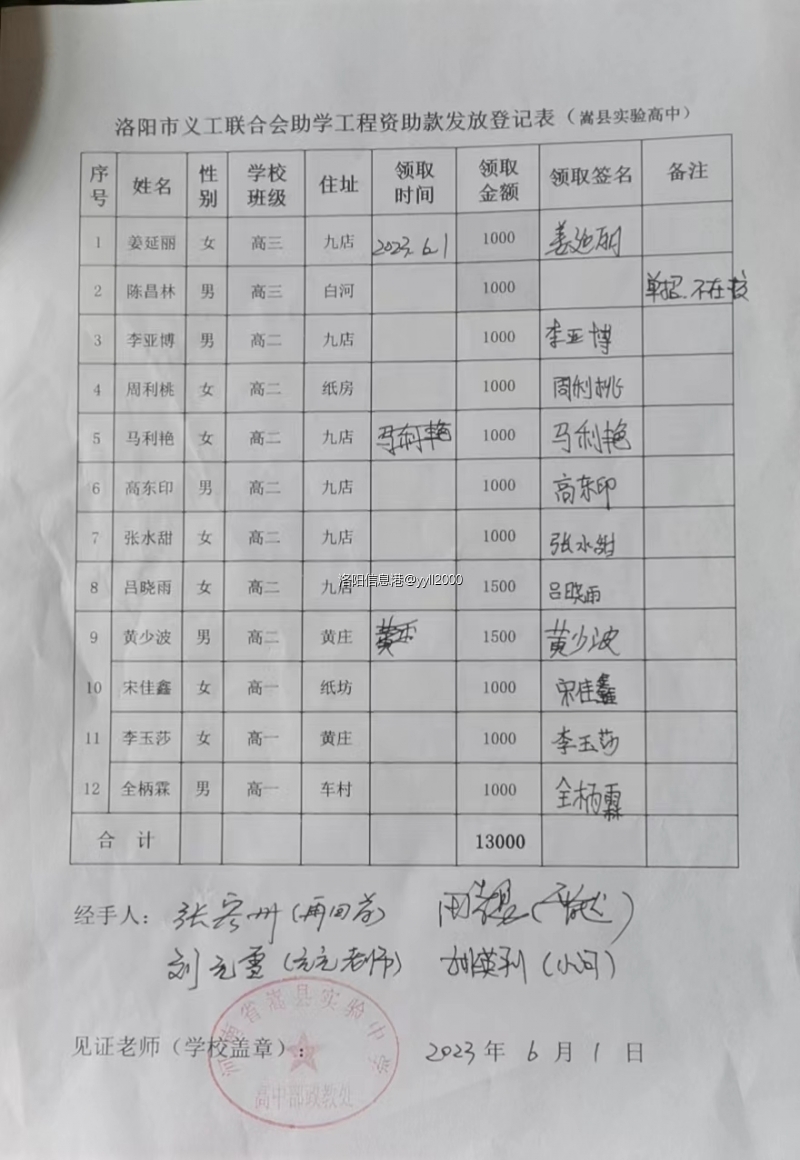 洛阳市义工联合会助学工程资助款发放登记表（嵩县实验高中）
序号 姓名 性别 学校班级 住址 领取时间 领取金额 领取签名 备注
1 姜延丽 女 高三 九店 2023.6.1 1000 姜延丽
2 陈昌林 男 高三 白河 1000 单招.不在校
3 李亚博 男 高二 九店 1000 李亚博
4 周利桃 女 高二 纸房 1000 周利桃
5 马利艳 女 高二 九店 1000 马利艳
6 高东印 男 高二 九店 1000 高东印
7 张水甜 女 高二 九店 1000 张水甜
8 吕晓雨 女 高二 九店 1500 吕晓雨
洛阳信息港@yyll2000
9 黄少波 男 高二 黄庄 1500 黄少波
10 宋佳鑫 女 高一 纸坊 1000 宋佳鑫
11 李玉莎 女 高一 黄庄 1000 李玉莎
12 全柄霖 男 高一 车村 1000 全柄霖
合 计 13000
经手人：张
刘元雪（元元老师） 胡英利（小河）
见证老师（学校盖章）： 2023年 6月1日
河南省嵩县实验中学
高中部政教处